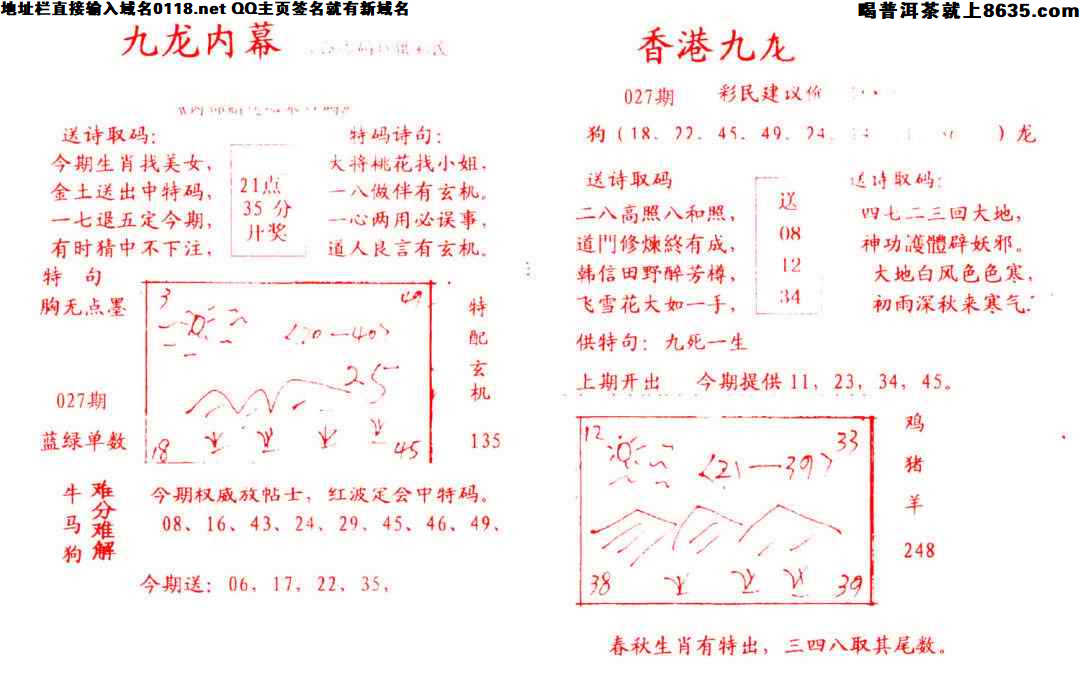 地址栏直接输入域名0118.net QQ主页签名就有新域名
喝普洱茶就上8635.com
九龙内幕
送诗取码:
今期生肖找美女,
金土送出中特码,
一七退五定今期,
有时猜中不下注,
21点
35 分
开奖
特码诗句:
大将桃花找小姐,
一八做伴有玄机。
一心两用必误事,
道人良言有玄机。
特 句
胸无点墨
027期
蓝绿单数
3
49
25
18
45
特
配
玄
机
135
牛
马
狗
难
分
难
解
今期权威放帖士, 红波定会中特码。
08、16、43、24、29、45、46、49、
今期送: 06, 17, 22, 35,
香港九龙
027期 彩民建议价
狗 (18、22、45、49、24、
) 龙
送诗取码
二八高照八和照,
道門修煉終有成,
韩信田野醉芳樽,
飞雪花大如一手,
送
08
12
34
送诗取码:
四七二三回大地,
神功護體辟妖邪。
大地白风色色寒,
初雨深秋来寒气.
供特句: 九死一生
上期开出 今期提供 11, 23, 34, 45。
12
33
〈21—39〉
38
39
鸡
猪
羊
248
春秋生肖有特出, 三四八取其尾数。